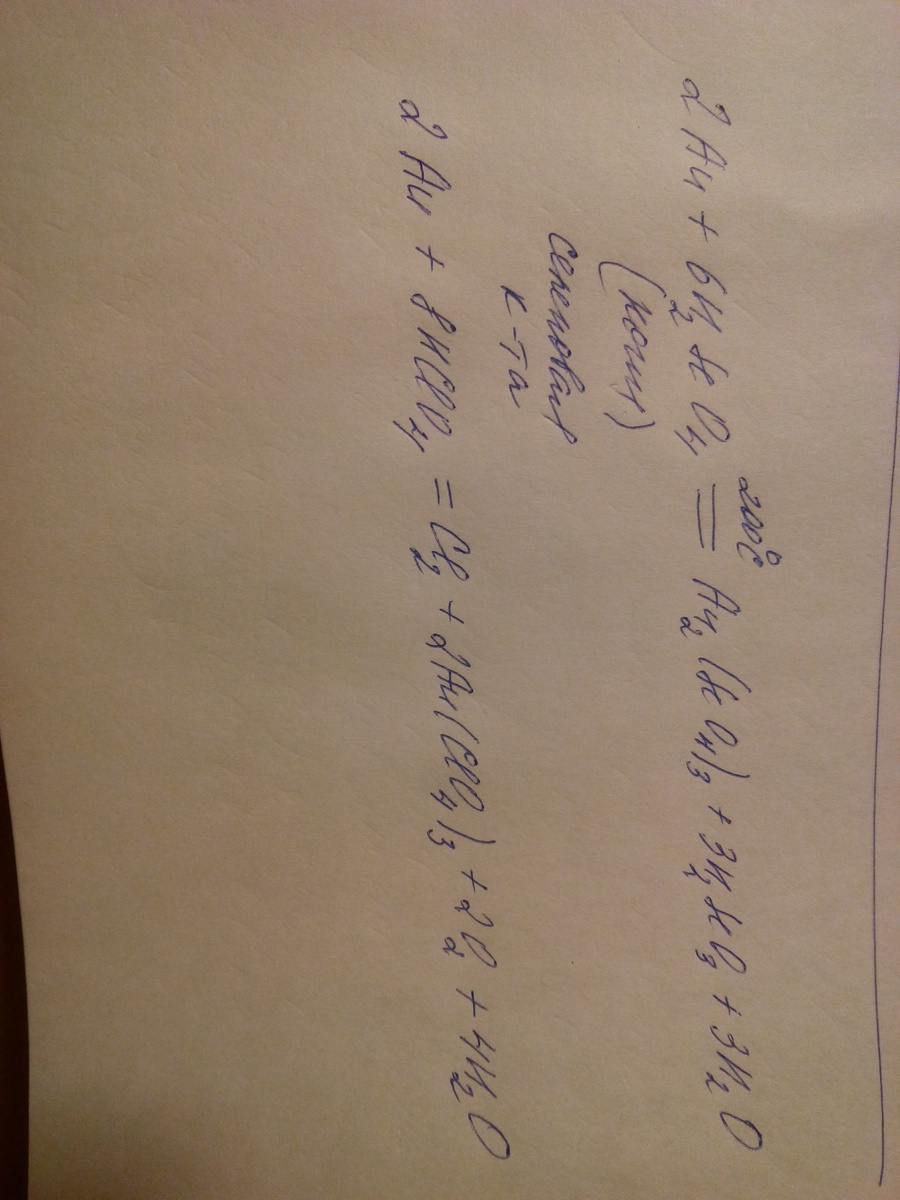 200°C
2Au + 6H₂SeO₄ = Au₂(SeO₄)₃ + 3H₂SeO₃ + 3H₂O
(конц.)
селеновая
к-та
2Au + 8HClO₄ = Cl₂ + 2Au(ClO₄)₃ + 2O₂ + 4H₂O